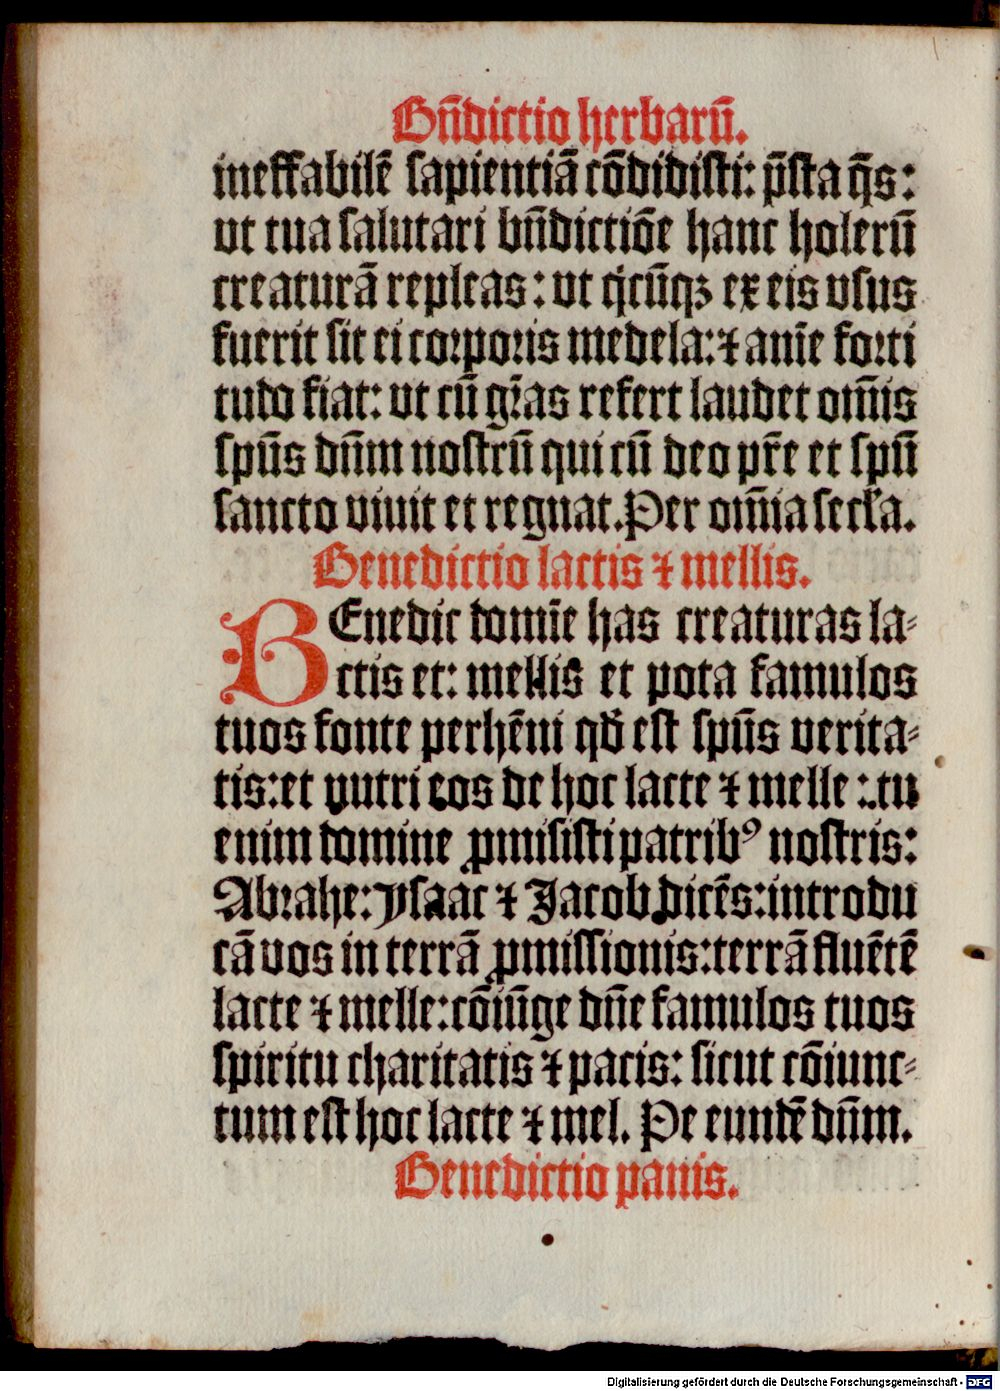 Bn̄dictio herbarū.
ineffabilē sapientiā cōdidisti: p̄sta q̄s:
ut tua salutari bn̄dictiōe hanc holerū
creaturā repleas: ut qͥcūqꝫ ex eis vsus
fuerit sit ei corporis medela: ⁊ anīe forti
tudo fiat: ut cū gr̄as refert laudet om̄is
spūs dn̄m nostrū qui cū deo pr̄e et spū
sancto viuit et regnat. Per om̄ia secła.
Benedictio lactis ⁊ mellis.
BEnedic domīe has creaturas la⸗
ctis et: mellis et pota famulos
tuos fonte perhēni qđ est spūs verita⸗
tis: et nutri eos de hoc lacte ⁊ melle :. tu
enim domine ꝓmisisti patribꝰ nostris:
Abrahe: ysaac ⁊ Jacob dicēs: introdu
cā vos in terrā ꝓmissionis: terrā fluētē
lacte ⁊ melle: cōiūge dn̄e famulos tuos
spiritu charitatis ⁊ pacis: sicut cōiunc⸗
tum est hoc lacte ⁊ mel. Pe eundē dn̄m.
Benedictio panis.
Digitalisierung gefördert durch die Deutsche Forschungsgemeinschaft - DFG